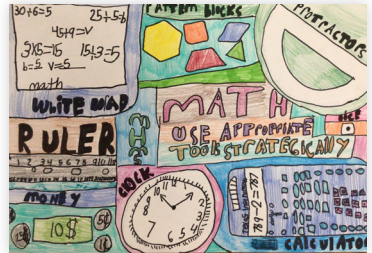 30+6=5
25÷5=5
45÷9=V
3X5=15
15÷3=5
b=5 V=5
math
WHITE
PATTERN BLOCKS
PROTRACTORS
MATH
USE APPROPRIATE
TOOLS STRATEGICALLY
RULER
0 1 2 3 4 5 6 7 8 9 10 11
MONEY
10$
5¢
1¢
CLOCK
789-2=787
CALCULATOR